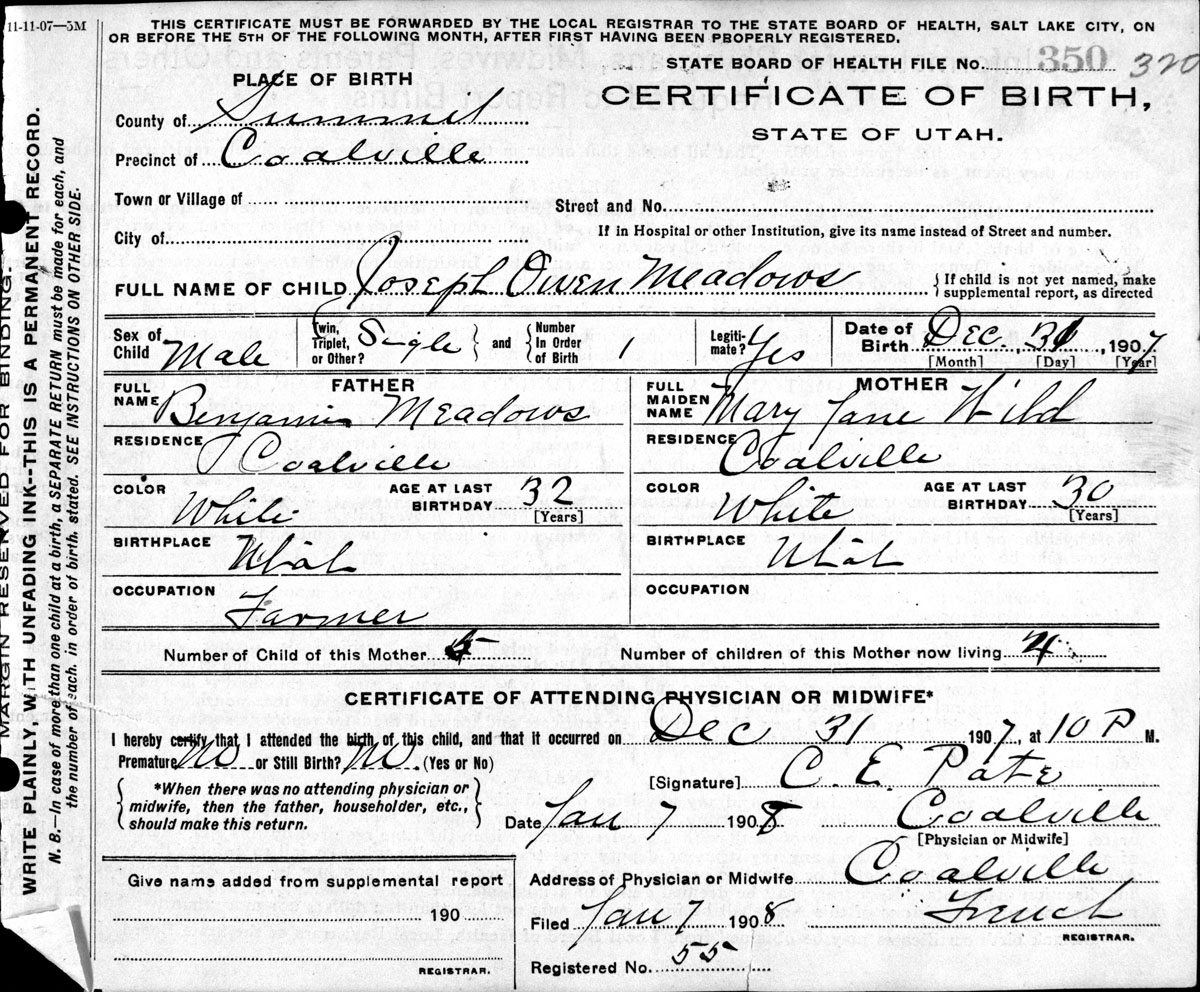 11-11-07—5M
THIS CERTIFICATE MUST BE FORWARDED BY THE LOCAL REGISTRAR TO THE STATE BOARD OF HEALTH, SALT LAKE CITY, ON
OR BEFORE THE 5TH OF THE FOLLOWING MONTH, AFTER FIRST HAVING BEEN PBOPERLY REGISTERED.
STATE BOARD OF HEALTH FILE No. 350 320
PLACE OF BIRTH
CERTIFICATE OF BIRTH,
STATE OF UTAH.
County of Summit
Precinct of Coalville
Town or Village of
Street and No.
City of
If in Hospital or other Institution, give its name instead of Street and number.
FULL NAME OF CHILD Joseph Owen Meadows { If child is not yet named, make
supplemental report, as directed
Sex of Child Male
Twin, Triplet, or Other? Single } and { Number In Order of Birth 1
Legiti-mate? Yes
Date of Birth Dec. 31, 1907
[Month] [Day] [Year]
FATHER
FULL NAME Benjamin Meadows
RESIDENCE Coalville
COLOR White AGE AT LAST BIRTHDAY 32 [Years]
BIRTHPLACE Utah
OCCUPATION Farmer
MOTHER
FULL MAIDEN NAME Mary Jane Wild
RESIDENCE Coalville
COLOR White AGE AT LAST BIRTHDAY 30 [Years]
BIRTHPLACE Utah
OCCUPATION
Number of Child of this Mother 5 Number of children of this Mother now living 4
CERTIFICATE OF ATTENDING PHYSICIAN OR MIDWIFE*
I hereby certify that I attended the birth of this child, and that it occurred on Dec 31 1907, at 10 P M.
Premature No or Still Birth? No. (Yes or No)
[Signature] C. E. Pate
*When there was no attending physician or
midwife, then the father, householder, etc.,
should make this return.
Date Jan 7 1908 Coalville
[Physician or Midwife]
Address of Physician or Midwife Coalville
Give name added from supplemental report
190
REGISTRAR.
Filed Jan 7 1908
REGISTRAR.
Registered No. 55
MARGIN RESERVED FOR BINDING.
WRITE PLAINLY, WITH UNFADING INK--THIS IS A PERMANENT RECORD.
N. B.—In case of more than one child at a birth, a SEPARATE RETURN must be made for each, and
the number of each, in order of birth, stated. SEE INSTRUCTIONS ON OTHER SIDE.